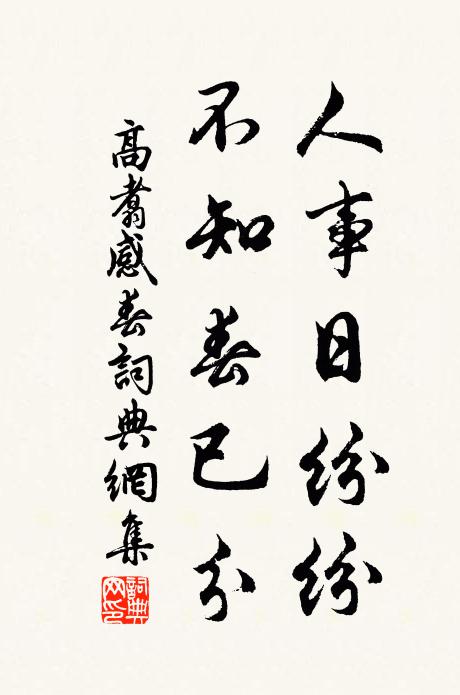 人事日紛紛
不知春已分
高翥感春詞典網集
詞典網印